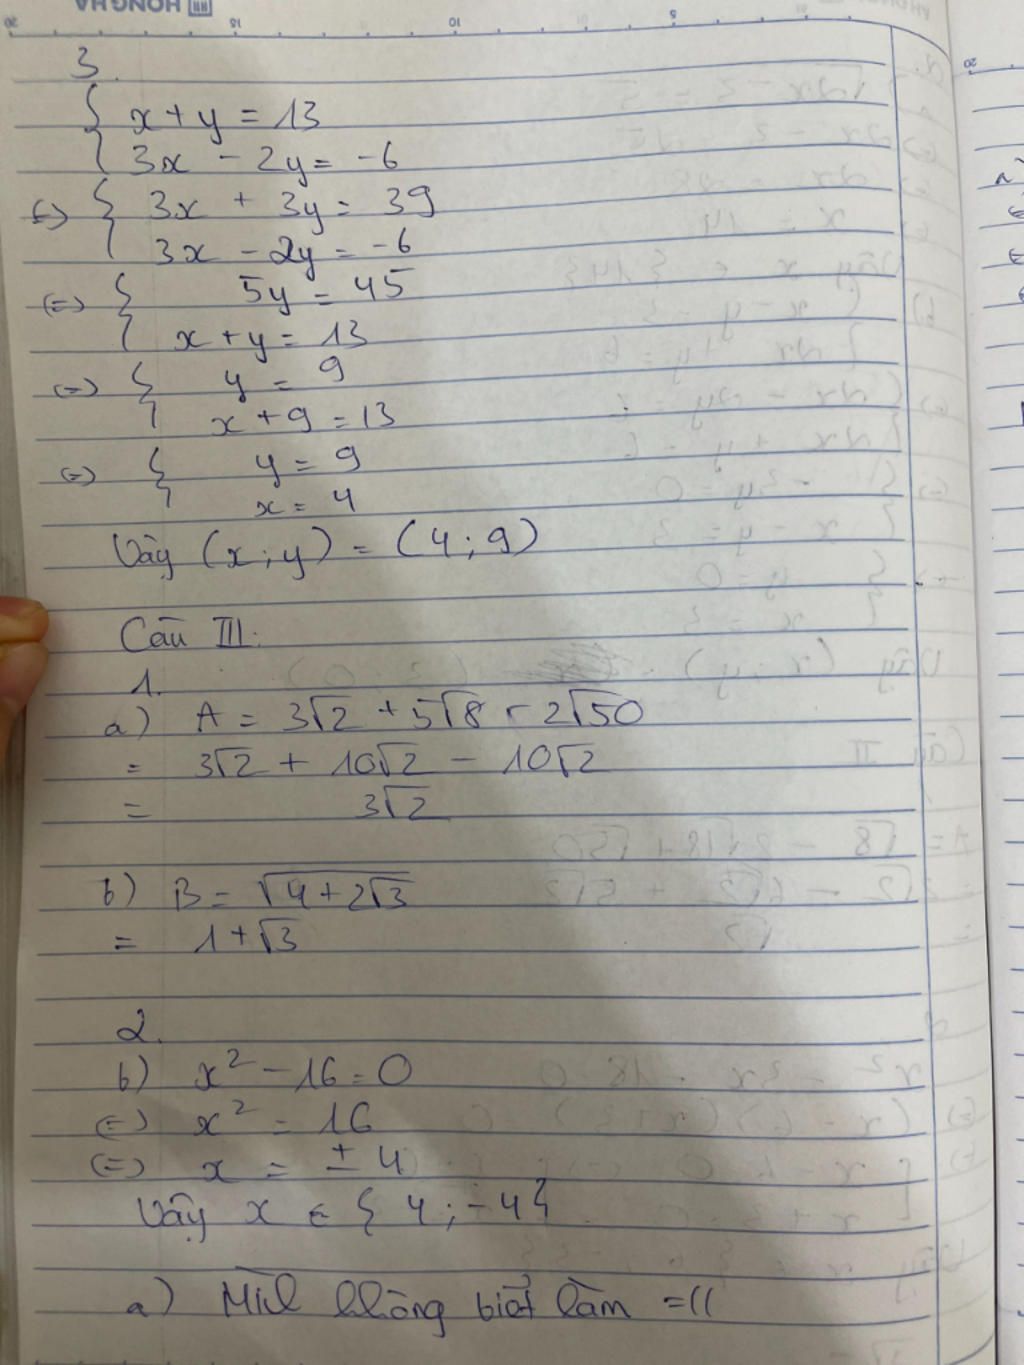 HONG HA
20 15 10 5
20
3.
{ x + y = 13
3x - 2y = -6
(=) { 3x + 3y = 39
3x - 2y = -6
(=) { 5y = 45
x + y = 13
(=) { y = 9
x + 9 = 13
(=) { y = 9
x = 4
Vậy (x; y) = (4; 9)
Câu III:
1.
a) A = 3√2 + 5√8 - 2√50
= 3√2 + 10√2 - 10√2
= 3√2
b) B = √(4 + 2√3)
= 1 + √3
2.
b) x² - 16 = 0
(=) x² = 16
(=) x = ± 4
Vậy x ∈ { 4; -4}
a) Mình không biết làm =((